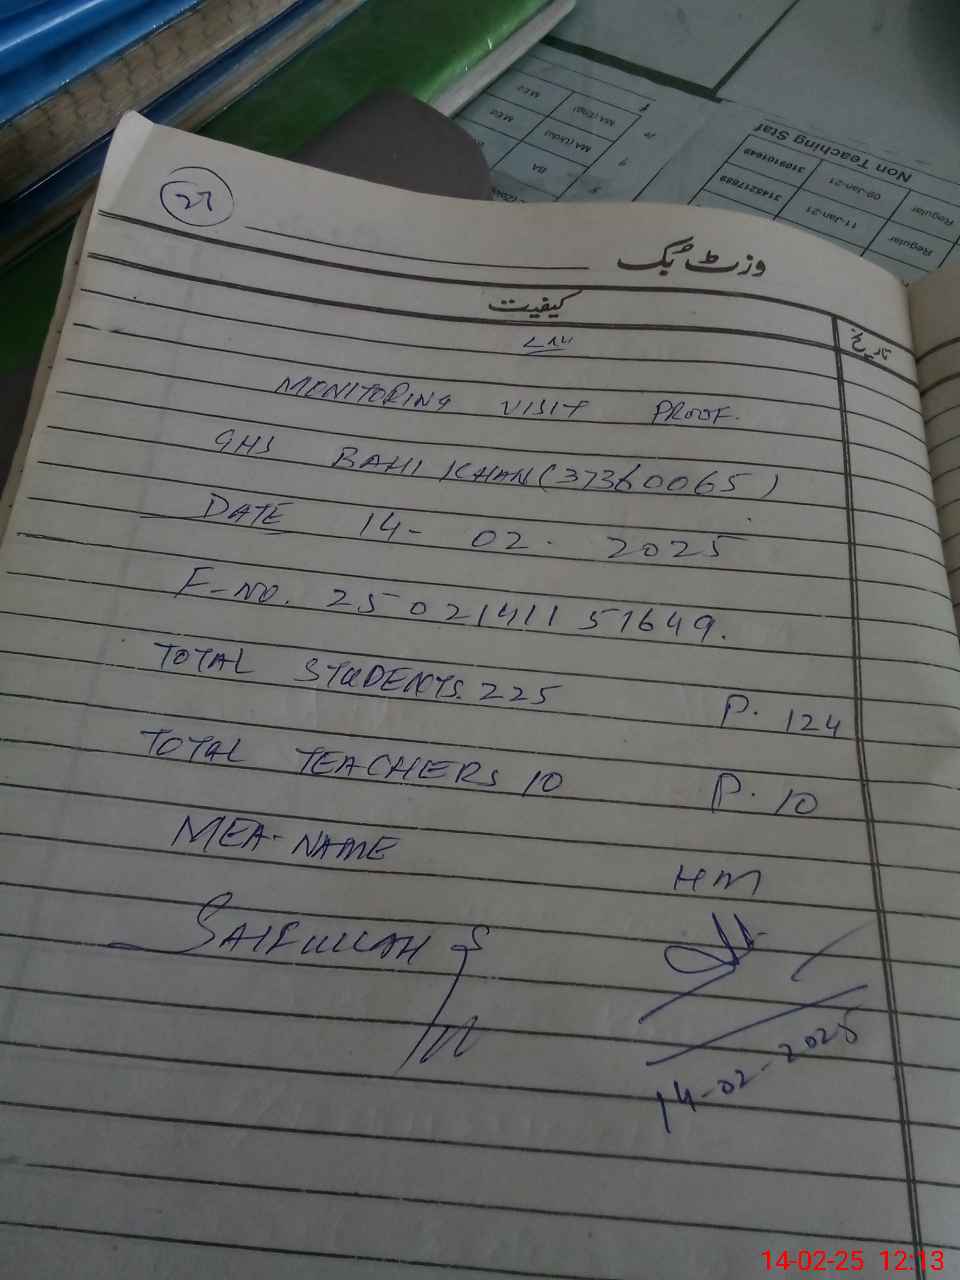 Non Teaching Staf
Regular 09-Jan-21 3109101649
Regular 11-Jan-21 3145217889
MA (Eng) M.Ed
MA (Urdu) M.Ed
BA
27
وزٹ بک
تاریخ کیفیت
MONITORING VISIT PROOF.
GHS BAHI KHAN (37360065)
DATE 14-02-2025
F-NO. 25021411 51649.
TOTAL STUDENTS. 225 P. 124
TOTAL TEACHERS 10 P. 10
MEA-NAME HM
SAIFULLAH
14-02-2025
14-02-25 12:13